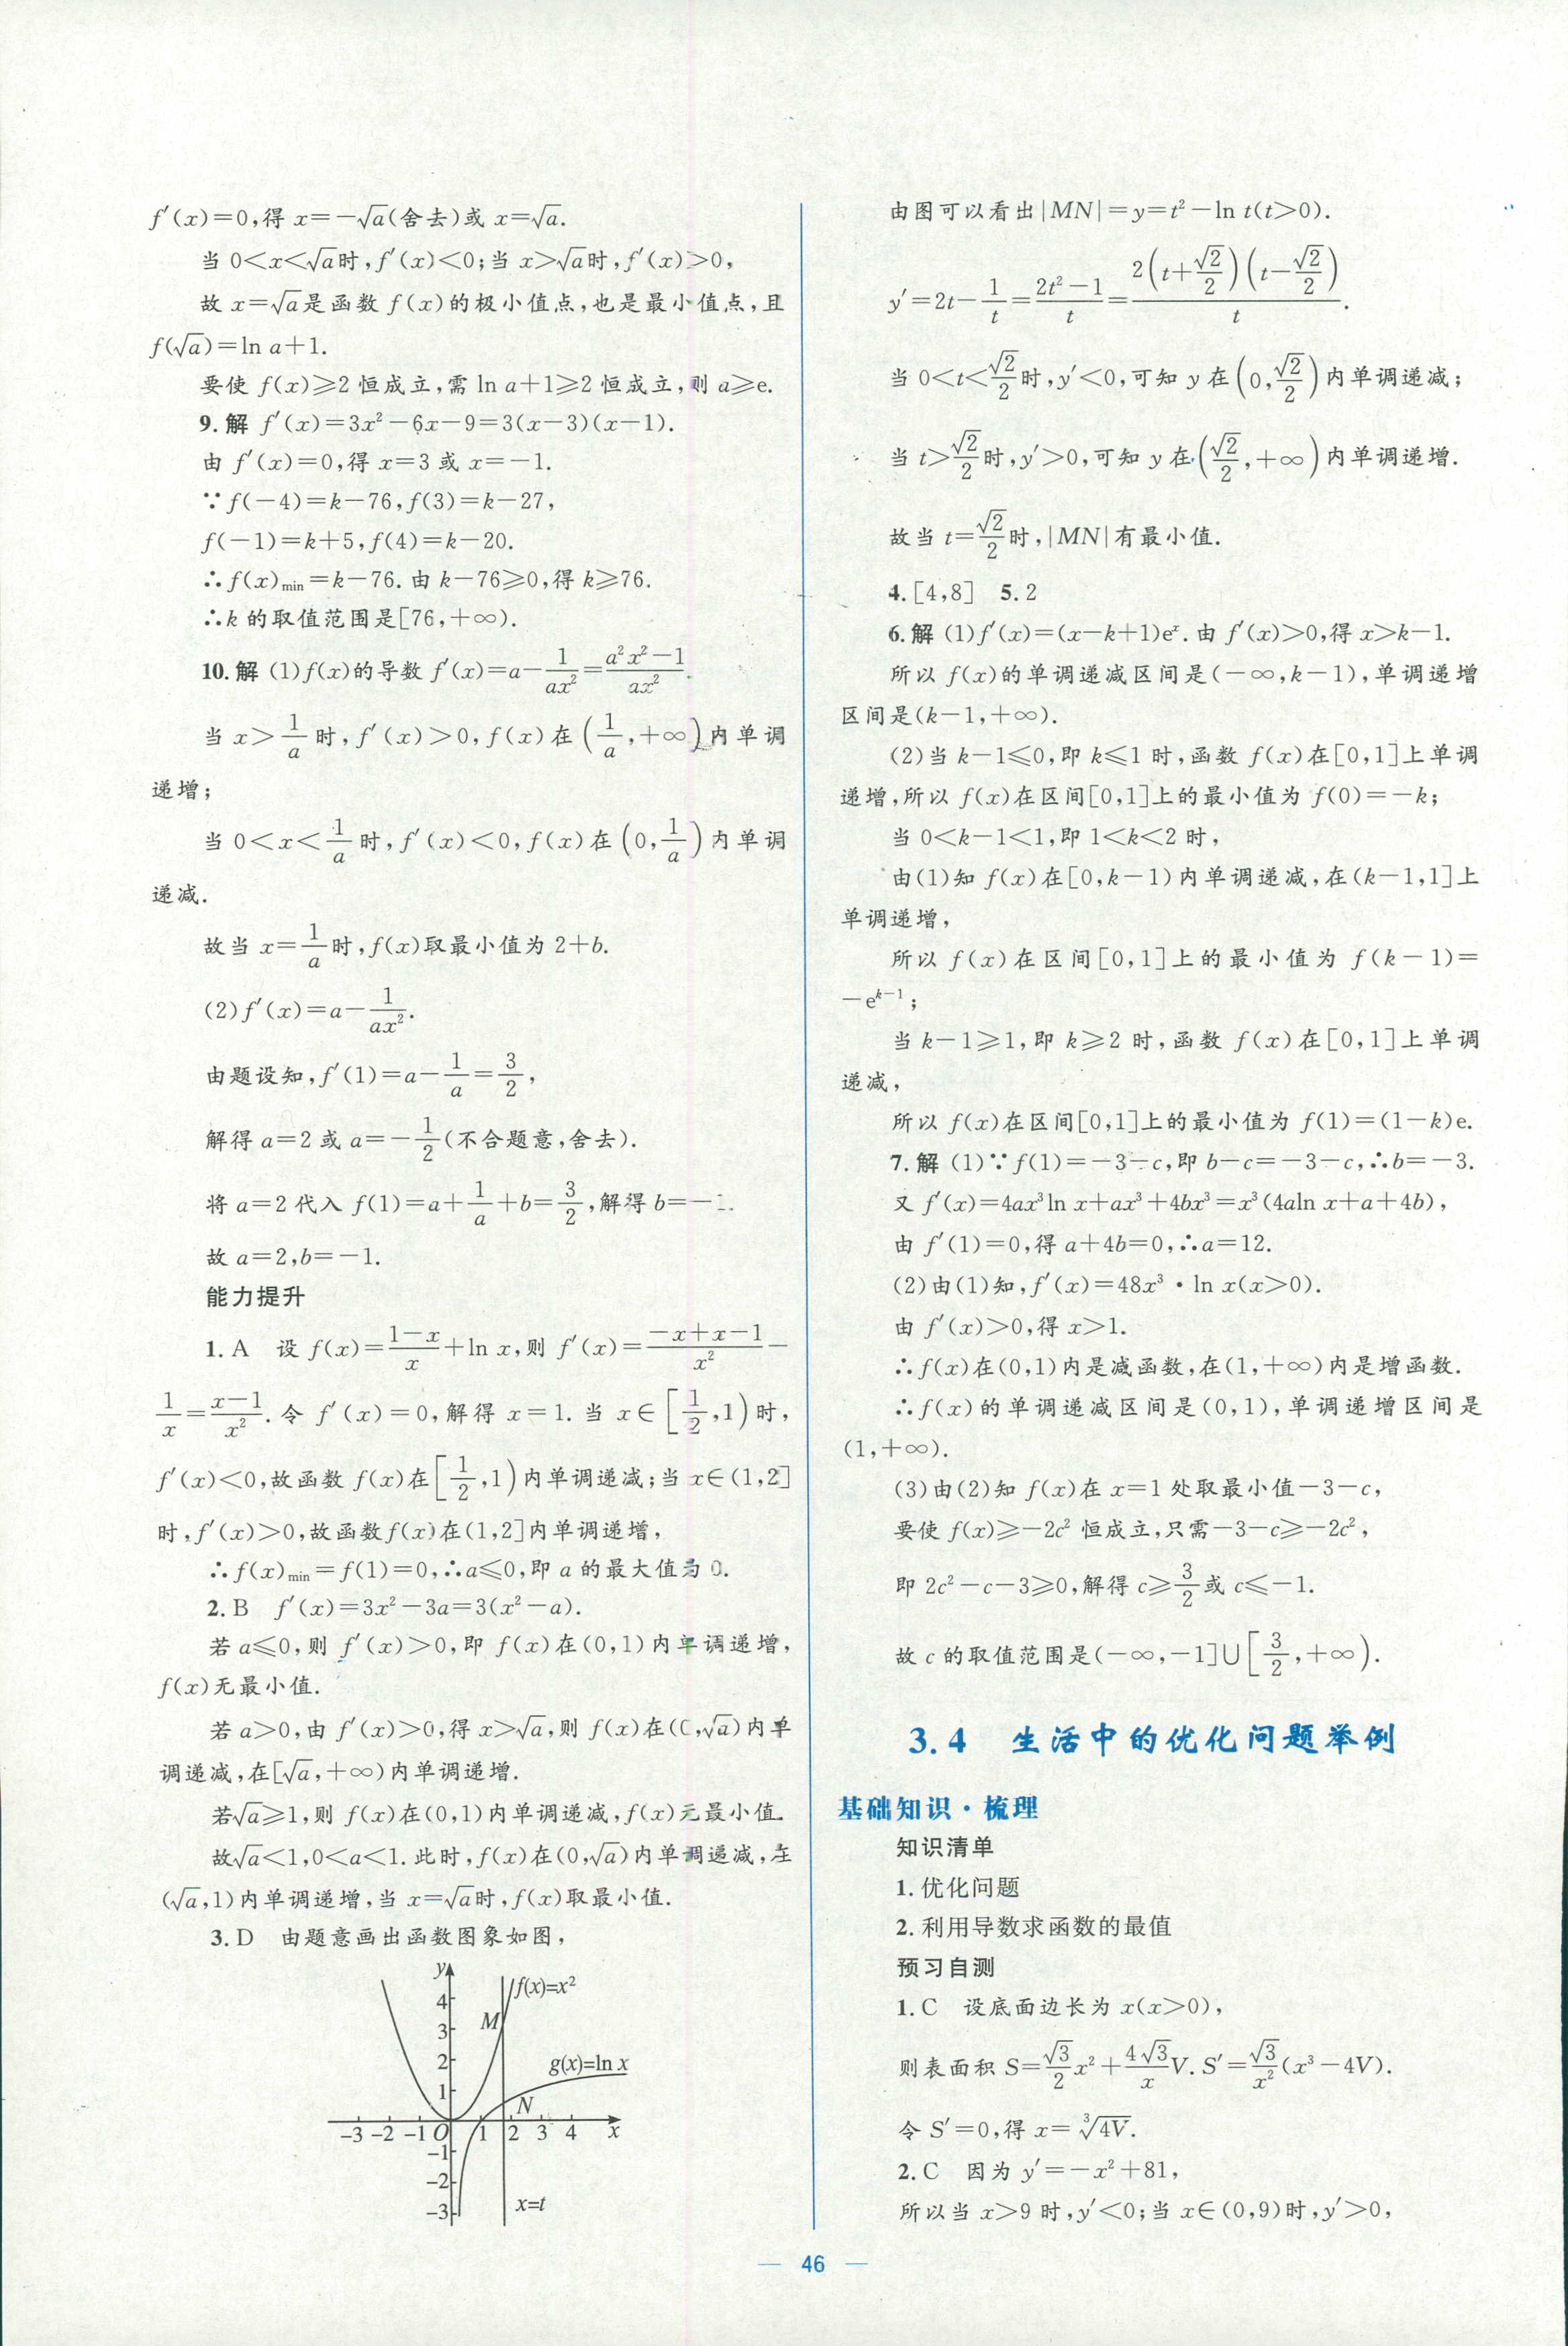 f′(x)=0,得 x=-√a(舍去)或 x=√a.
当 0<x<√a时,f′(x)<0;当 x>√a时,f′(x)>0,
故 x=√a是函数 f(x)的极小值点,也是最小值点,且
f(√a)=ln a+1.
要使 f(x)≥2 恒成立,需 ln a+1≥2 恒成立,则 a≥e.
9.解 f′(x)=3x²-6x-9=3(x-3)(x-1).
由 f′(x)=0,得 x=3 或 x=-1.
∵f(-4)=k-76,f(3)=k-27,
f(-1)=k+5,f(4)=k-20.
∴f(x)min=k-76.由 k-76≥0,得 k≥76.
∴k 的取值范围是[76,+∞).
10.解 (1)f(x)的导数 f′(x)=a-1/(ax²)=(a²x²-1)/(ax²).
当 x>1/a 时,f′(x)>0,f(x)在(1/a,+∞)内单调
递增;
当 0<x<1/a 时,f′(x)<0,f(x)在(0,1/a)内单调
递减.
故当 x=1/a时,f(x)取最小值为 2+b.
(2)f′(x)=a-1/(ax²).
由题设知,f′(1)=a-1/a=3/2,
解得 a=2 或 a=-1/2(不合题意,舍去).
将 a=2 代入 f(1)=a+1/a+b=3/2,解得 b=-1.
故 a=2,b=-1.
能力提升
1.A 设 f(x)=(1-x)/x+ln x,则 f′(x)=(-x+x-1)/x²-
1/x=(x-1)/x².令 f′(x)=0,解得 x=1.当 x∈[1/2,1)时,
f′(x)<0,故函数 f(x)在[1/2,1)内单调递减;当 x∈(1,2]
时,f′(x)>0,故函数f(x)在(1,2]内单调递增,
∴f(x)min=f(1)=0,∴a≤0,即 a 的最大值为 0.
2.B f′(x)=3x²-3a=3(x²-a).
若 a≤0,则 f′(x)>0,即 f(x)在(0,1)内单调递增,
f(x)无最小值.
若 a>0,由 f′(x)>0,得 x>√a,则 f(x)在(0,√a)内单
调递减,在[√a,+∞)内单调递增.
若√a≥1,则 f(x)在(0,1)内单调递减,f(x)无最小值.
故√a<1,0<a<1.此时,f(x)在(0,√a)内单调递减,在
(√a,1)内单调递增,当 x=√a时,f(x)取最小值.
3.D 由题意画出函数图象如图,
y
f(x)=x²
4
M
3
2
g(x)=ln x
1
N
-3 -2 -1 O 1 2 3 4 x
-1
-2
-3
x=t
由图可以看出|MN|=y=t²-ln t(t>0).
y′=2t-1/t=(2t²-1)/t=2(t+√2/2)(t-√2/2)/t.
当 0<t<√2/2时,y′<0,可知 y 在(0,√2/2)内单调递减;
当 t>√2/2时,y′>0,可知 y 在(√2/2,+∞)内单调递增.
故当 t=√2/2时,|MN|有最小值.
4.[4,8] 5.2
6.解 (1)f′(x)=(x-k+1)eˣ.由 f′(x)>0,得 x>k-1.
所以 f(x)的单调递减区间是(-∞,k-1),单调递增
区间是(k-1,+∞).
(2)当 k-1≤0,即 k≤1 时,函数 f(x)在[0,1]上单调
递增,所以 f(x)在区间[0,1]上的最小值为 f(0)=-k;
当 0<k-1<1,即 1<k<2 时,
由(1)知 f(x)在[0,k-1)内单调递减,在(k-1,1]上
单调递增,
所以 f(x)在区间[0,1]上的最小值为 f(k-1)=
-e^(k-1);
当 k-1≥1,即 k≥2 时,函数 f(x)在[0,1]上单调
递减,
所以 f(x)在区间[0,1]上的最小值为 f(1)=(1-k)e.
7.解 (1)∵f(1)=-3-c,即 b-c=-3-c,∴b=-3.
又 f′(x)=4ax³ln x+ax³+4bx³=x³(4aln x+a+4b),
由 f′(1)=0,得 a+4b=0,∴a=12.
(2)由(1)知,f′(x)=48x³·ln x(x>0).
由 f′(x)>0,得 x>1.
∴f(x)在(0,1)内是减函数,在(1,+∞)内是增函数.
∴f(x)的单调递减区间是(0,1),单调递增区间是
(1,+∞).
(3)由(2)知 f(x)在 x=1 处取最小值-3-c,
要使 f(x)≥-2c² 恒成立,只需-3-c≥-2c²,
即 2c²-c-3≥0,解得 c≥3/2或 c≤-1.
故 c 的取值范围是(-∞,-1]∪[3/2,+∞).
3.4 生活中的优化问题举例
基础知识·梳理
知识清单
1.优化问题
2.利用导数求函数的最值
预习自测
1.C 设底面边长为 x(x>0),
则表面积 S=√3/2x²+4√3/xV.S′=√3/x²(x³-4V).
令 S′=0,得 x=∛4V.
2.C 因为 y′=-x²+81,
所以当 x>9 时,y′<0;当 x∈(0,9)时,y′>0,
— 46 —